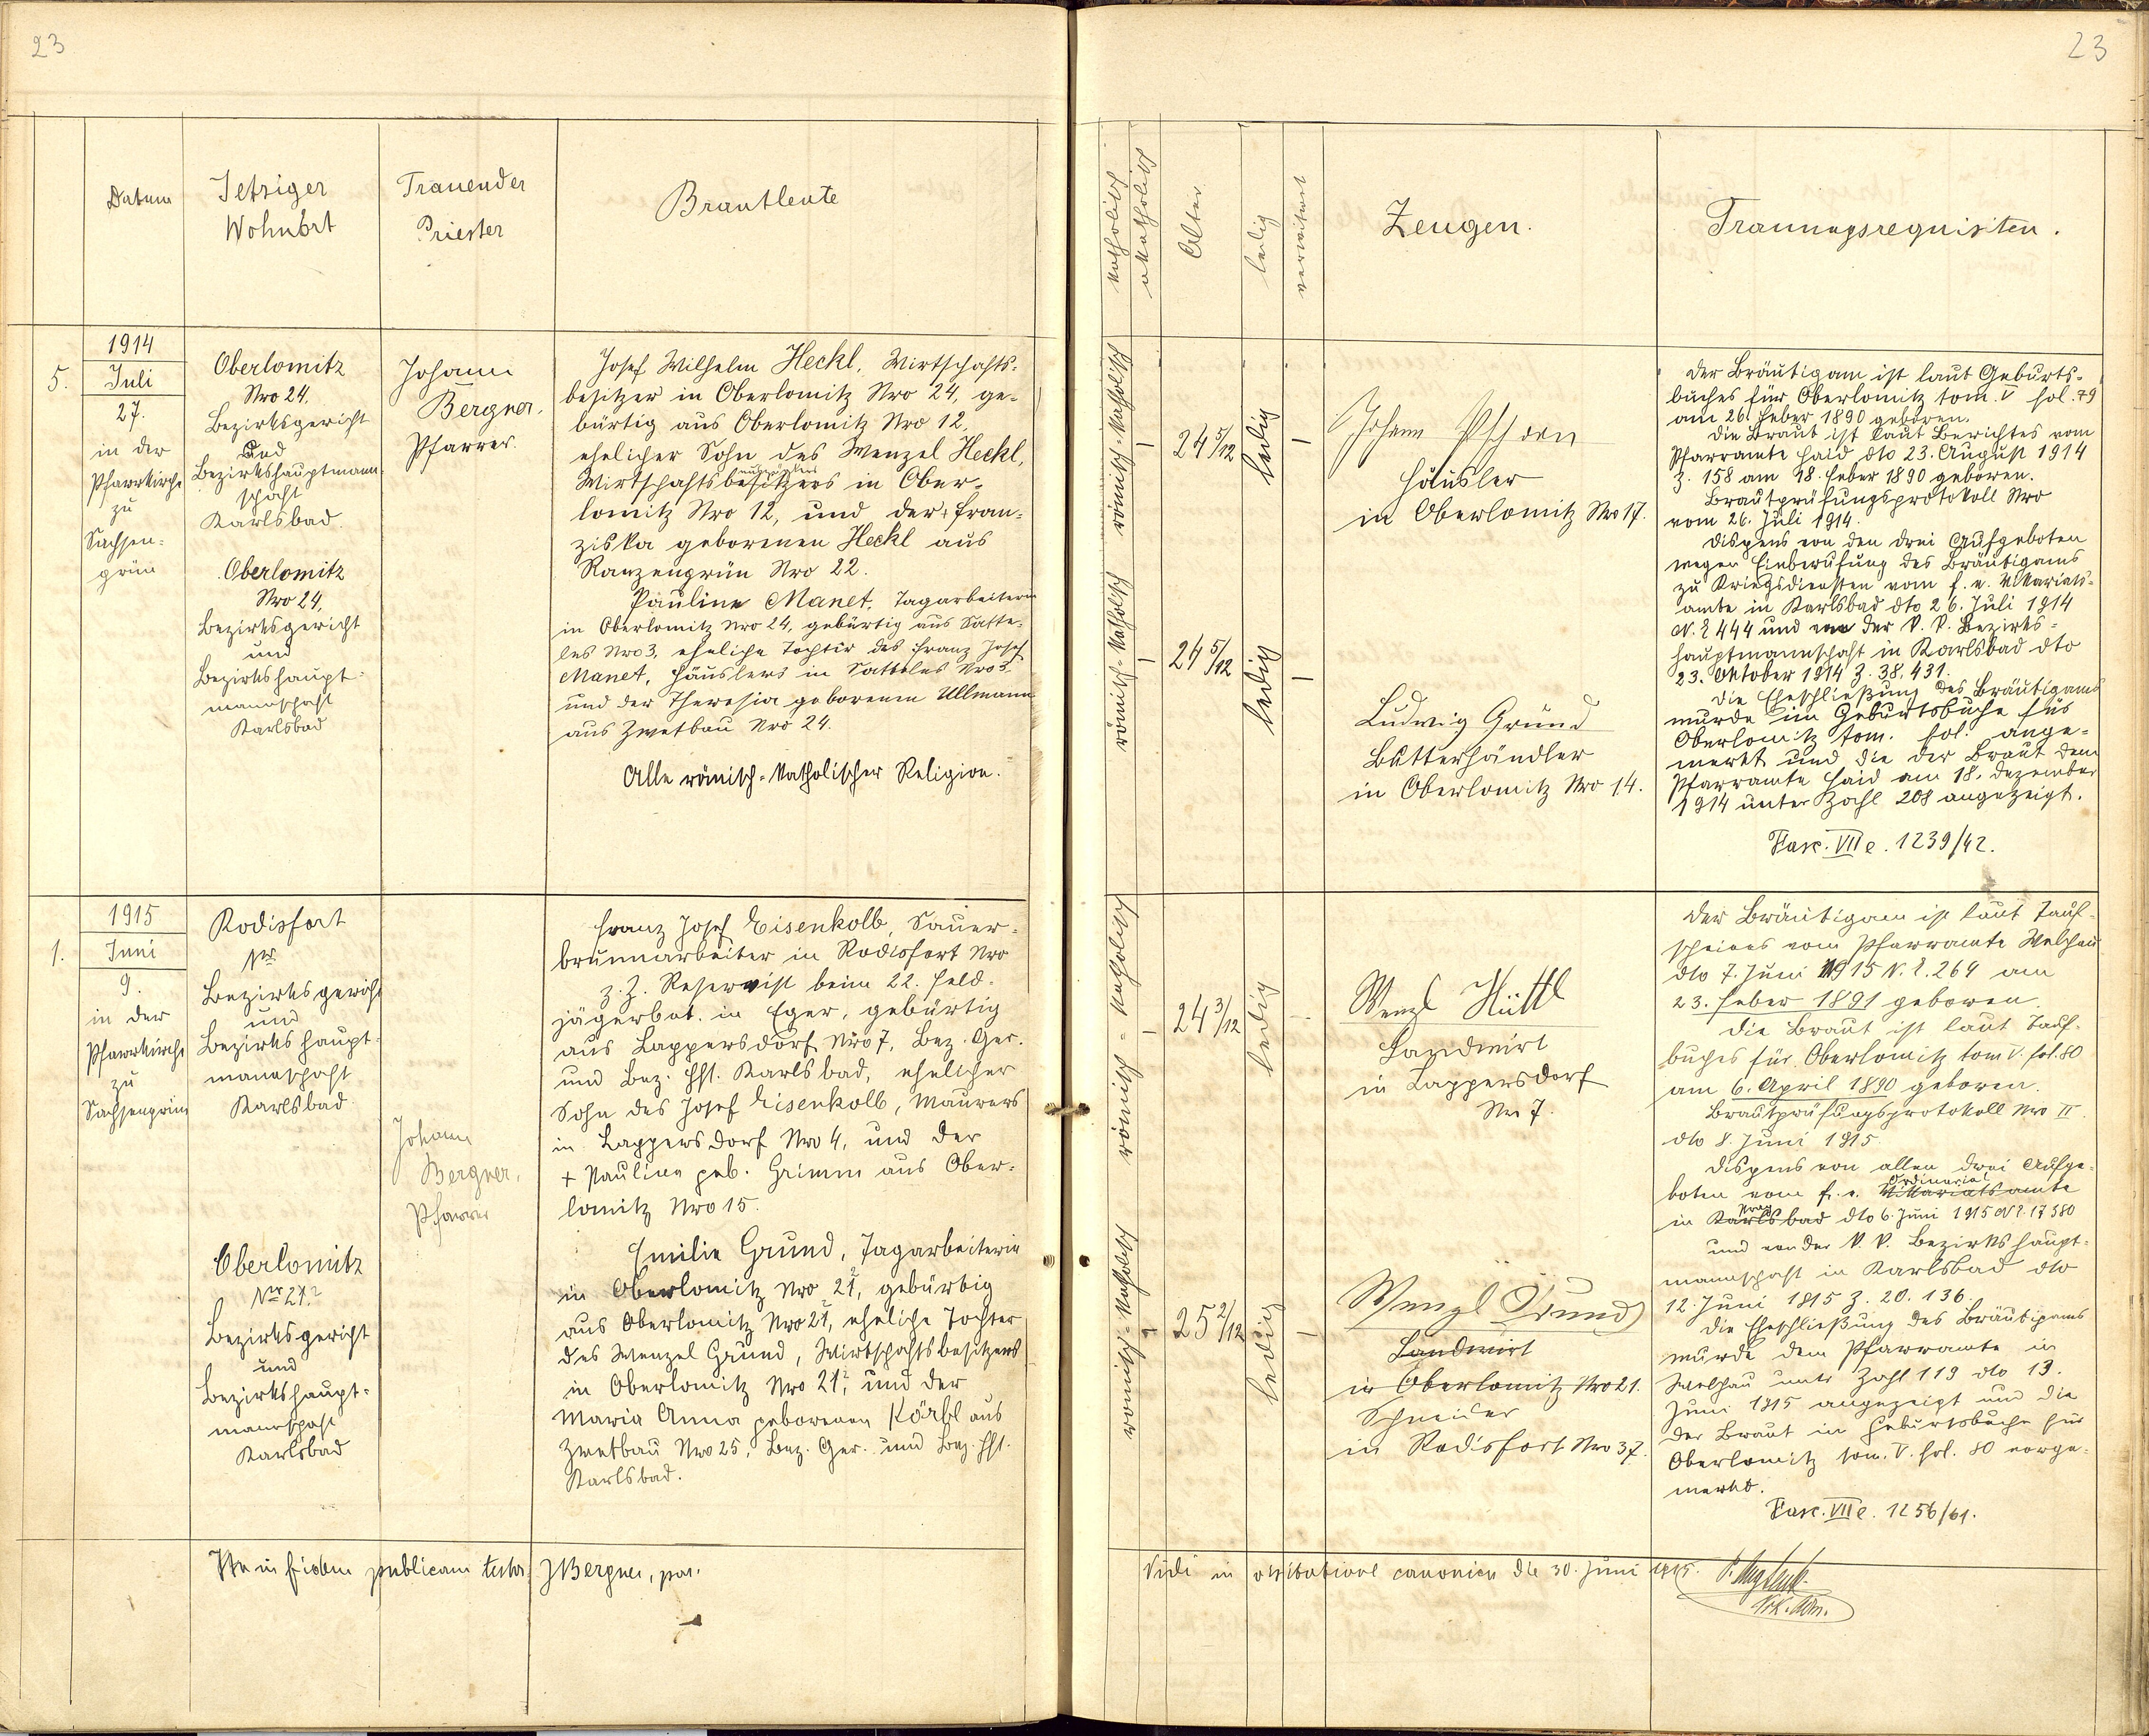 23
23
Datum
Jetziger
Wohnort
Trauender
Priester
Brautleute
katholisch
akatholisch
Alter
ledig
verwitwet
Zeugen.
Trauungsrequisiten.
5.
1914
Juli
27.
in der
Pfarrkirche
zu
Sachsen-
grün
Oberlomitz
Nro 24,
Bezirksgericht
und
Bezirkshauptmann-
schaft
Karlsbad.
Oberlomitz
Nro 24,
Bezirksgericht
und
Bezirkshaupt-
mannschaft
Karlsbad
Johann
Bergner,
Pfarrer.
Josef Wilhelm Heckl, Wirtschafts-
besitzer in Oberlomitz Nro 24, ge-
bürtig aus Oberlomitz Nro 12,
ehelicher Sohn des Wenzel Heckl,
Wirtschaftsbesitzers in Ober-
lomitz Nro 12, und der + Fran-
ziska geborenen Heckl aus
Ranzengrün Nro 22.
Pauline Manet, Tagarbeiterin
in Oberlomitz Nro 24, gebürtig aus Satte-
les Nro 3, eheliche Tochter des Franz Josef
Manet, Häuslers in Satteles Nro 3
und der Theresia geborenen Ullmann
aus Zwetbau Nro 24.
Alle römisch-katholischer Religion.
römisch-katholisch
24 5/12
ledig
römisch-katholisch
24 5/12
ledig
Johann Pschorn
Häusler
in Oberlomitz Nro 17.
Ludwig Grund
Butterhändler
in Oberlomitz Nro 14.
Der Bräutigam ist laut Geburts-
buches für Oberlomitz tom. V fol. 79
am 26. Feber 1890 geboren.
Die Braut ist laut Berichtes vom
Pfarramte Haid dto 23. August 1914
Z. 158 am 18. Feber 1890 geboren.
Brautprüfungsprotokoll Nro
vom 26. Juli 1914.
Dispens von den drei Aufgeboten
wegen Einberufung des Bräutigams
zu Kriegsdiensten vom f. e. Vikariats-
amte in Karlsbad dto 26. Juli 1914
N. E 444 und von der k. k. Bezirks-
hauptmannschaft in Karlsbad dto
23. Oktober 1914 Z. 38.431.
Die Eheschließung des Bräutigams
wurde im Geburtsbuche für
Oberlomitz tom. fol. ange-
merkt und die der Braut dem
Pfarramte Haid am 18. Dezember
1914 unter Zahl 208 angezeigt.
Fasc. VII e. 1239/42.
1.
1915
Juni
9.
in der
Pfarrkirche
zu
Sachsengrün
Rodisfort
Nro
Bezirksgericht
und
Bezirkshaupt-
mannschaft
Karlsbad
Oberlomitz
Nro 21?
Bezirksgericht
und
Bezirkshaupt-
mannschaft
Karlsbad
Johann
Bergner,
Pfarrer
Franz Josef Eisenkolb, Sauer-
brunnarbeiter in Rodisfort Nro
z. Z. Reservist beim 22. Feld-
jägerbat. in Eger, gebürtig
aus Lappersdorf Nro 7, Bez. Ger.
und Bez. Hft. Karlsbad, ehelicher
Sohn des Josef Eisenkolb, Maurers
in Lappersdorf Nro 4, und der
+ Pauline geb. Grimm aus Ober-
lomitz Nro 15.
Emilie Grund, Tagarbeiterin
in Oberlomitz Nro 21?, gebürtig
aus Oberlomitz Nro 21?, eheliche Tochter
des Wenzel Grund, Wirtschaftsbesitzers
in Oberlomitz Nro 21?, und der
Maria Anna geborenen Körbl aus
Zwetbau Nro 25, Bez. Ger. und Bez. Hft.
Karlsbad.
römisch-katholisch
24 3/12
ledig
römisch-katholisch
25 2/12
ledig
Wenzl Hüttl
Landwirt
in Lappersdorf
Nro 7.
Wenzl Grund
Landwirt
in Oberlomitz Nro 21.
Schneider
in Rodisfort Nro 37.
Der Bräutigam ist laut Tauf-
scheines vom Pfarramte Welchau
dto 7. Juni 1915 N. E. 264 am
23. Feber 1891 geboren.
Die Braut ist laut Tauf-
buches für Oberlomitz tom V. fol. 80
am 6. April 1890 geboren.
Brautprüfungsprotokoll Nro II
dto 8. Juni 1915
Dispens von allen drei Aufge-
Ordinariat
boten vom f. e. Vikariatsamte
Prag
in Karlsbad dto 6. Juni 1915 N E. 17380
und von der k. k. Bezirkshaupt-
mannschaft in Karlsbad dto
12. Juni 1915 Z. 20.136.
Die Eheschließung des Bräutigams
wurde dem Pfarramte in
Welchau unter Zahl 119 dto 13.
Juni 1915 angezeigt und die
der Braut in Geburtsbuche für
Oberlomitz tom. V. fol. 80 vorge-
merkt.
Fasc. VII e. 1256/61.
in fidem publicam testor JBergner, par.
Vidi in visitatione canonica die 30. Juni 1915.